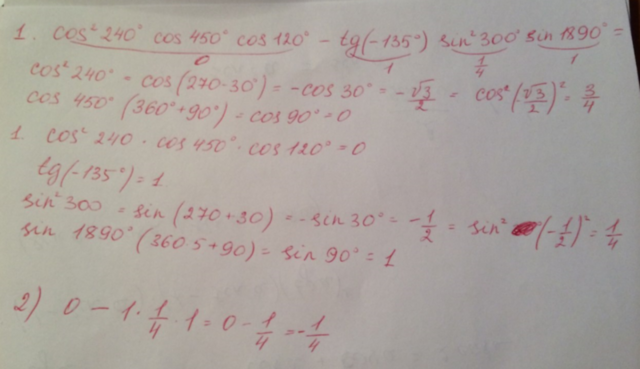 1. cos² 240° cos 450° cos 120° - tg(-135°) sin² 300° sin 1890° =
0 1 1/4 1
cos² 240° = cos(270-30°) = -cos 30° = -√3/2 = cos²(√3/2)² = 3/4
cos 450° (360°+90°) = cos 90° = 0
1. cos² 240 · cos 450° · cos 120° = 0
tg(-135°) = 1
sin² 300 = sin (270+30) = -sin 30° = -1/2 = sin² (-1/2)² = 1/4
sin 1890° (360·5+90) = sin 90° = 1
2) 0 - 1 · 1/4 · 1 = 0 - 1/4 = -1/4